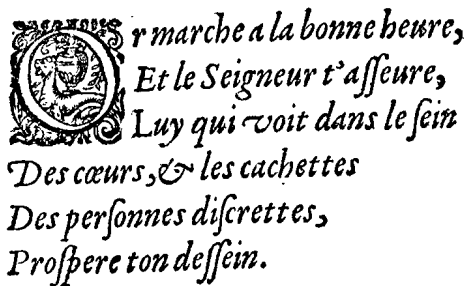 Or marche a la bonne heure,
Et le Seigneur t'aſſeure,
Luy qui voit dans le ſein
Des cœurs, & les cachettes
Des perſonnes diſcrettes,
Proſpere ton deſſein.